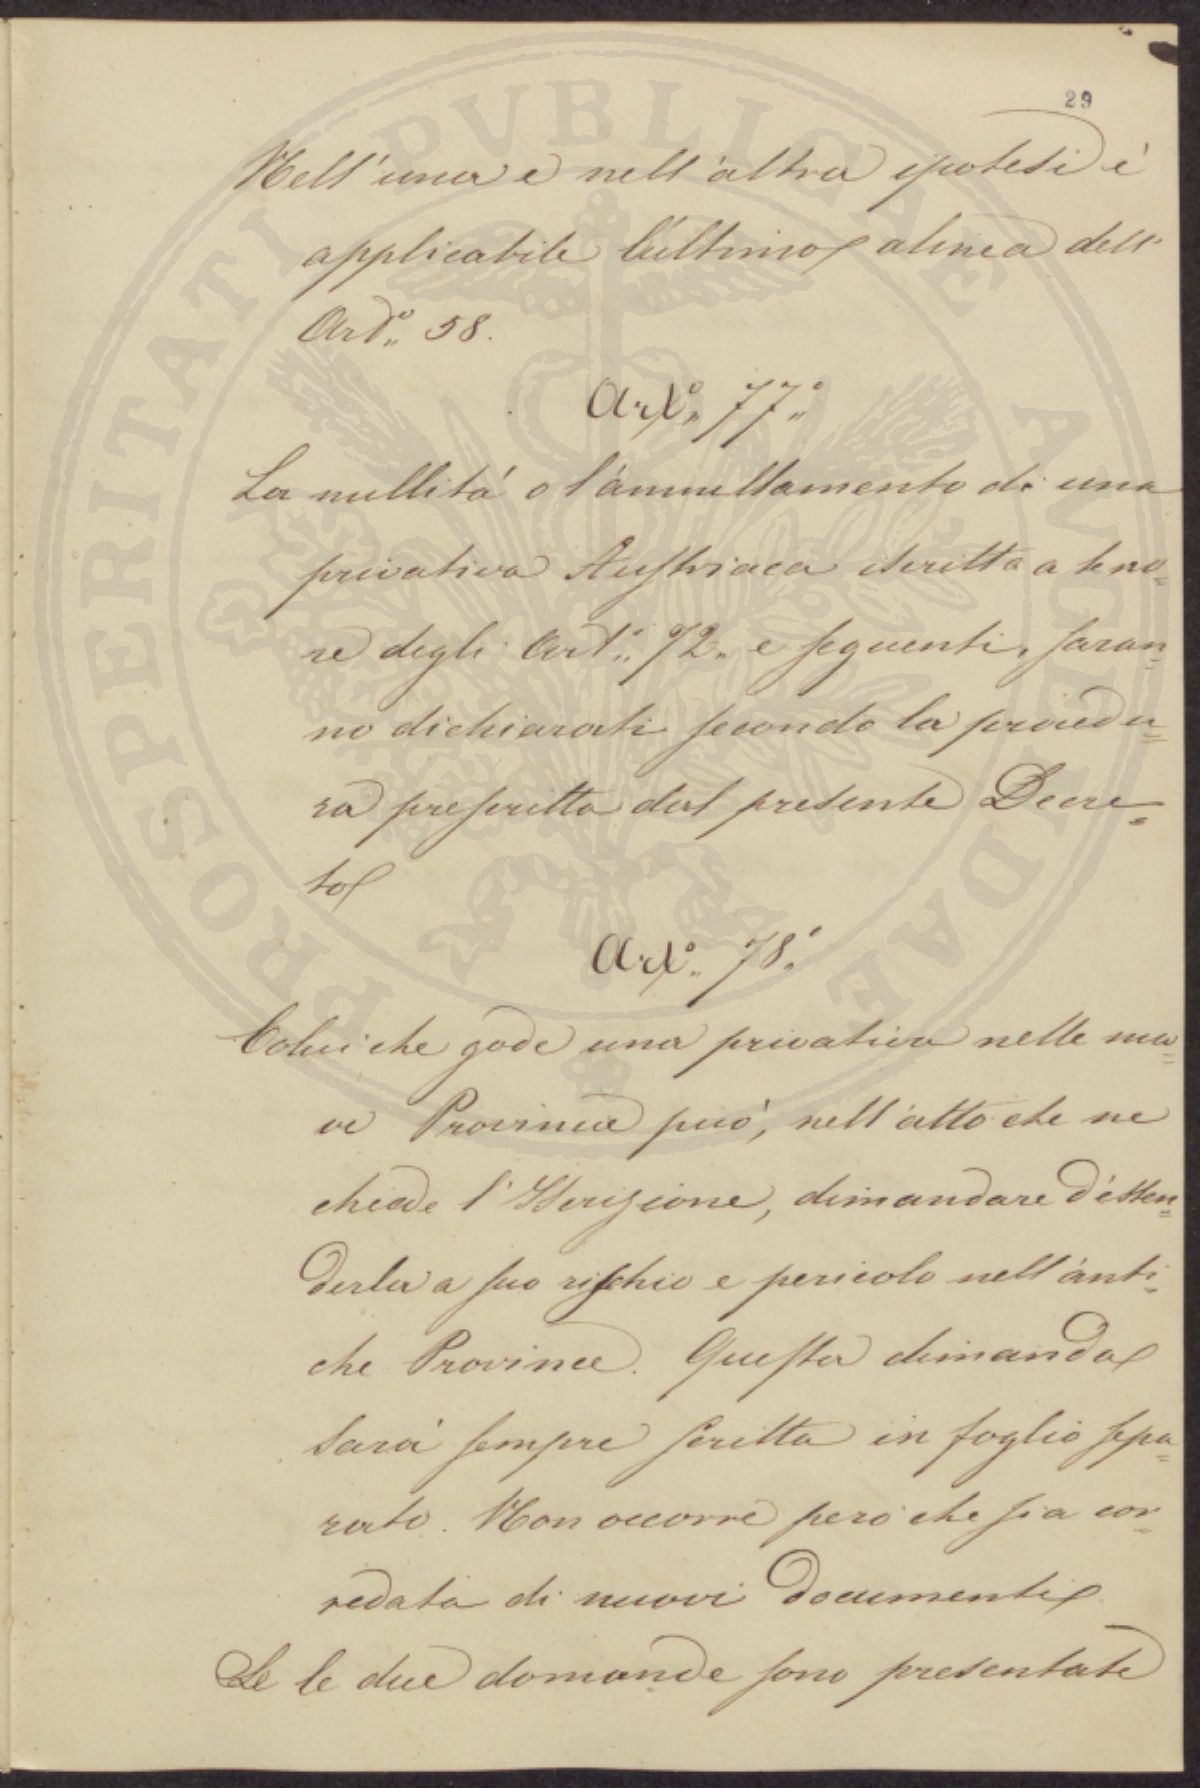 29
Nell'una e nell'altra ipotesi é
applicabile l'ultimo alinea dell'
Art.° 58.
Art.° 77.°
La nullitá o l'annullamento di una
privativa Austriaca iscritta a teno=
re degli Art.° 72. e seguenti, saran=
no dichiarati secondo la procedu=
ra prescritta dal presente Decre=
to
Art.° 78.°
Colui che gode una privativa nelle nuo=
ve Provincie puó, nell'atto che ne
chiede l'Iscrizione, dimandare d'esten=
derla a suo rischio e pericolo nell'anti=
che Provincie. Questa dimanda
sará sempre scritta in foglio sepa=
rato. Non occorre peró che sia cor=
redata di nuovi documenti
Se le due domande sono presentate
PROSPERITATI PVBLICAE AVGENDAE